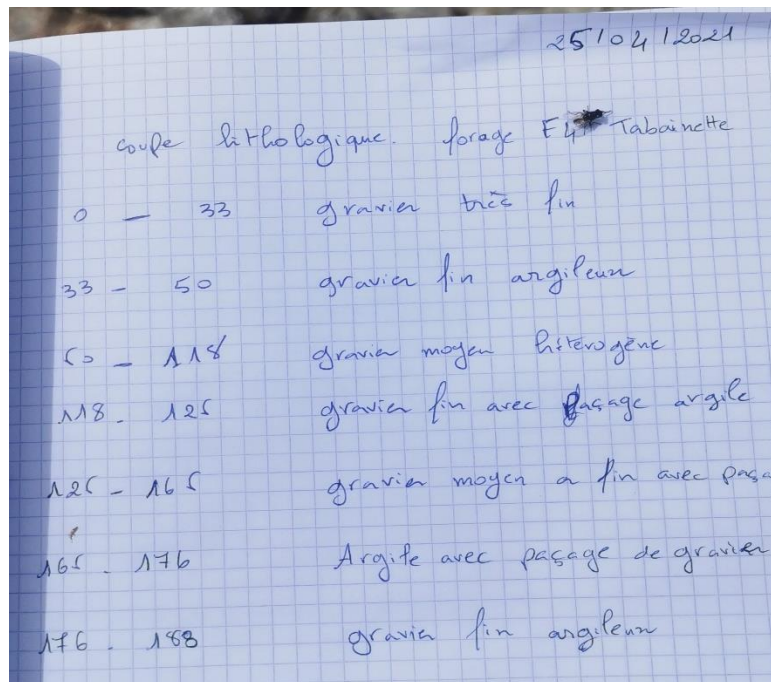 25/04/2021
coupe lithologique. forage E4 Tabainette
0 — 33 gravier très fin
33 - 50 gravier fin argileux
50 - 118 gravier moyen héterogène
118 - 125 gravier fin avec paçage argile
125 - 165 gravier moyen a fin avec paça
165 - 176 Argile avec paçage de gravier
176 - 188 gravier fin argileux